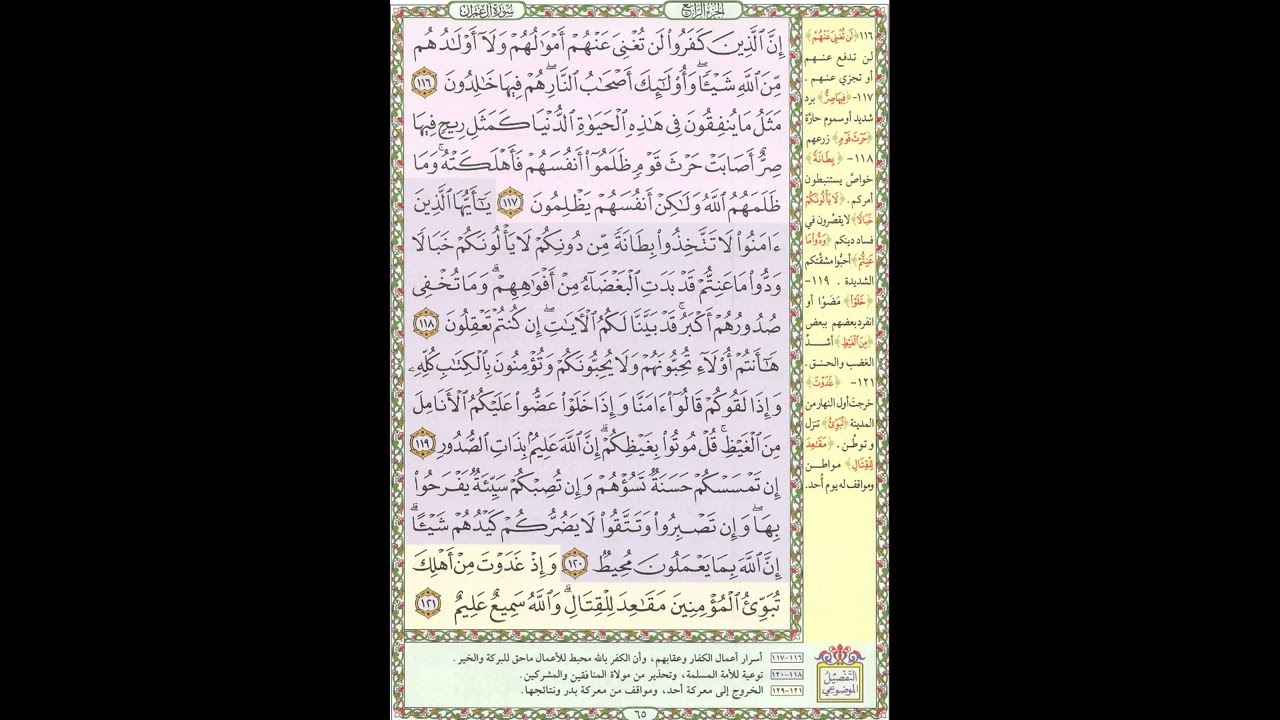 سورة آل عمران
الجزء الرابع
إِنَّ الَّذِينَ كَفَرُوا لَن تُغْنِيَ عَنْهُمْ أَمْوَالُهُمْ وَلَا أَوْلَادُهُم
مِّنَ اللَّهِ شَيْئًا ۖ وَأُولَٰئِكَ أَصْحَابُ النَّارِ ۚ هُمْ فِيهَا خَالِدُونَ ١١٦
مَثَلُ مَا يُنفِقُونَ فِي هَٰذِهِ الْحَيَاةِ الدُّنْيَا كَمَثَلِ رِيحٍ فِيهَا
صِرٌّ أَصَابَتْ حَرْثَ قَوْمٍ ظَلَمُوا أَنفُسَهُمْ فَأَهْلَكَتْهُ ۚ وَمَا
ظَلَمَهُمُ اللَّهُ وَلَٰكِنْ أَنفُسَهُمْ يَظْلِمُونَ ١١٧ يَا أَيُّهَا الَّذِينَ
ءَامَنُوا لَا تَتَّخِذُوا بِطَانَةً مِّن دُونِكُمْ لَا يَأْلُونَكُمْ خَبَالًا
وَدُّوا مَا عَنِتُّمْ قَدْ بَدَتِ الْبَغْضَاءُ مِنْ أَفْوَاهِهِمْ وَمَا تُخْفِي
صُدُورُهُمْ أَكْبَرُ ۚ قَدْ بَيَّنَّا لَكُمُ الْآيَاتِ ۖ إِن كُنتُمْ تَعْقِلُونَ ١١٨
هَا أَنتُمْ أُولَاءِ تُحِبُّونَهُمْ وَلَا يُحِبُّونَكُمْ وَتُؤْمِنُونَ بِالْكِتَابِ كُلِّهِ
وَإِذَا لَقُوكُمْ قَالُوا ءَامَنَّا وَإِذَا خَلَوْا عَضُّوا عَلَيْكُمُ الْأَنَامِلَ
مِنَ الْغَيْظِ ۚ قُلْ مُوتُوا بِغَيْظِكُمْ ۗ إِنَّ اللَّهَ عَلِيمٌ بِذَاتِ الصُّدُورِ ١١٩
إِن تَمْسَسْكُمْ حَسَنَةٌ تَسُؤْهُمْ وَإِن تُصِبْكُمْ سَيِّئَةٌ يَفْرَحُوا
بِهَا ۖ وَإِن تَصْبِرُوا وَتَتَّقُوا لَا يَضُرُّكُمْ كَيْدُهُمْ شَيْئًا ۗ
إِنَّ اللَّهَ بِمَا يَعْمَلُونَ مُحِيطٌ ١٢٠ وَإِذْ غَدَوْتَ مِنْ أَهْلِكَ
تُبَوِّئُ الْمُؤْمِنِينَ مَقَاعِدَ لِلْقِتَالِ ۗ وَاللَّهُ سَمِيعٌ عَلِيمٌ ١٢١
١١٦- ﴿لَن تُغْنِيَ عَنْهُمْ﴾
لن تدفع عنهم
أو تجزي عنهم .
١١٧- ﴿فِيهَا صِرٌّ﴾ برد
شديد أو سموم حارّة
﴿حَرْثَ قَوْمٍ﴾ زرعهم
١١٨- ﴿بِطَانَةً﴾
خواصّ يستنبطون
أمركم . ﴿لَا يَأْلُونَكُمْ
خَبَالًا﴾ لا يقصّرون في
فساد دينكم ﴿وَدُّوا مَا
عَنِتُّمْ﴾ أحبُّوا مشقَّتكم
الشديدة . ١١٩-
﴿خَلَوْا﴾ مَضَوْا أو
انفرد بعضهم ببعض
﴿مِنَ الْغَيْظِ﴾ أشدّ
الغضب والحنق .
١٢١- ﴿غَدَوْتَ﴾
خرجت أول النهار من
المدينة ﴿تُبَوِّئُ﴾ تنزل
وتوطّن . ﴿مَقَاعِدَ
لِلْقِتَالِ﴾ مواطن
ومواقف له يوم أُحد.
التفصيل
الموضوعي
١١٦-١١٧ أسرار أعمال الكفار وعقابهم، وأن الكفر بالله محبط للأعمال ماحق للبركة والخير .
١١٨-١٢٠ توعية للأمة المسلمة، وتحذير من موالاة المنافقين والمشركين.
١٢١-١٢٩ الخروج إلى معركة أحد، ومواقف من معركة بدر ونتائجها.
٦٥